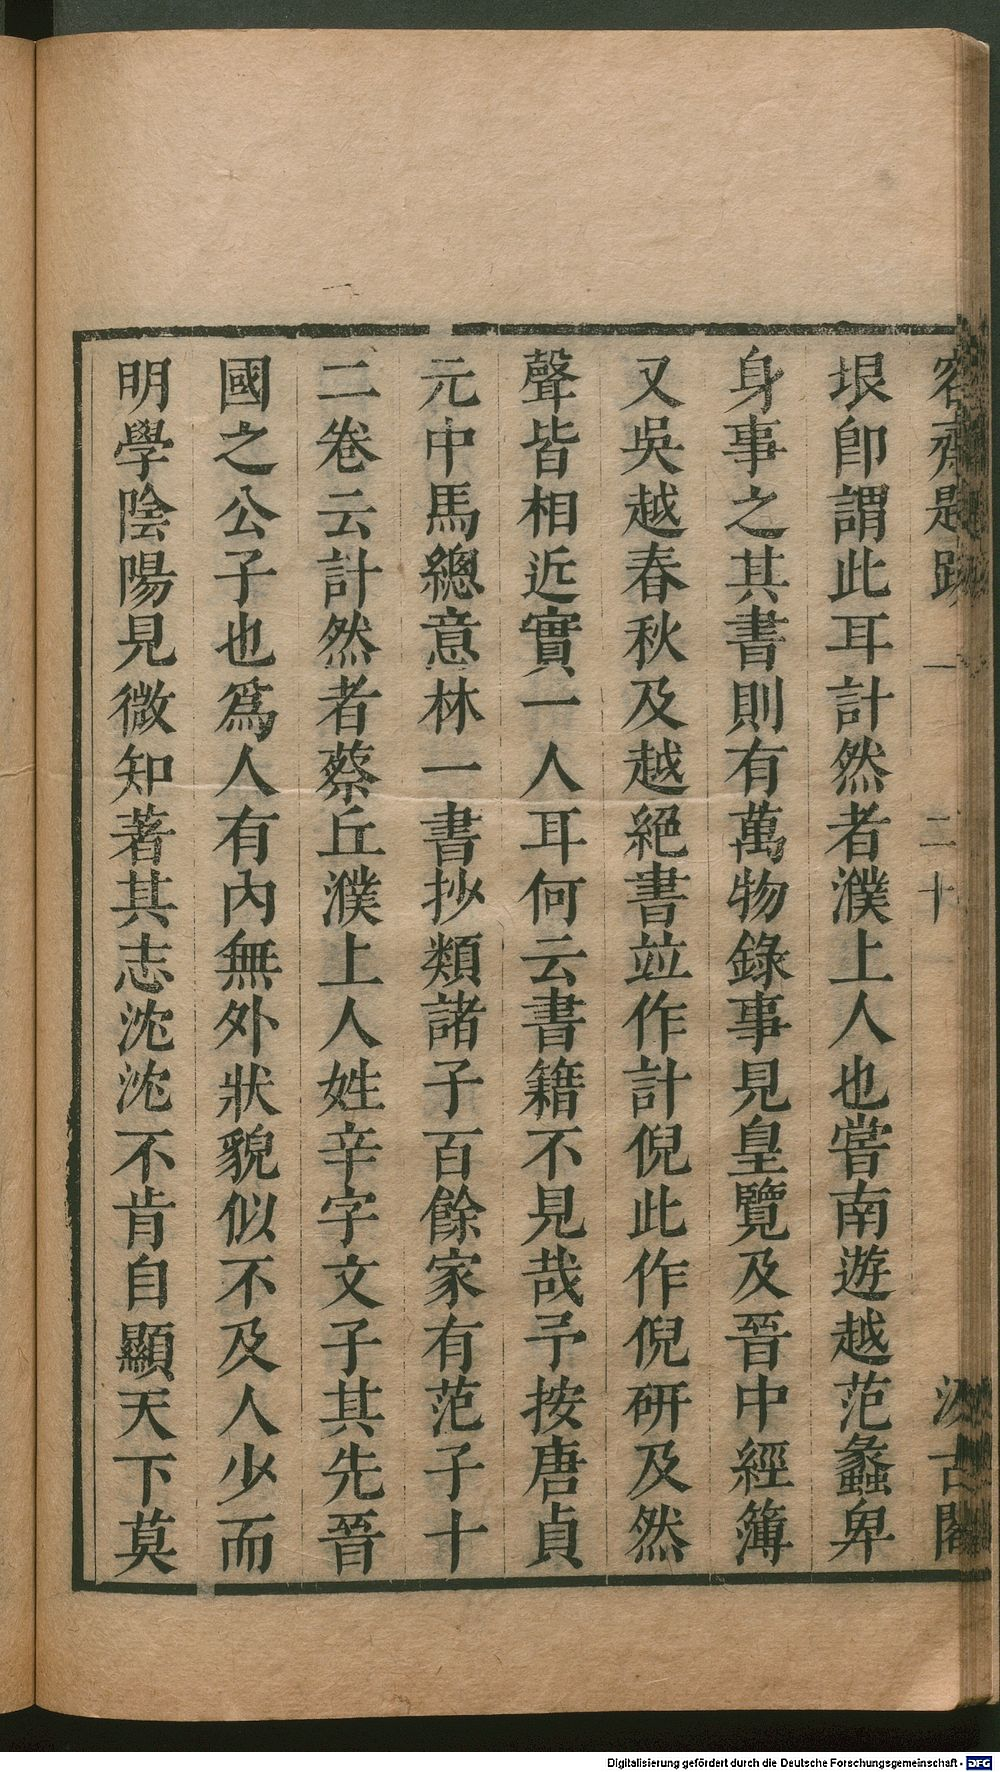 容齋題跋 一 二十 汲古閣
垠卽謂此耳計然者濮上人也嘗南遊越范蠡卑
身事之其書則有萬物錄事見皇覽及晉中經簿
又吳越春秋及越絕書竝作計倪此作倪研及然
聲皆相近實一人耳何云書籍不見哉予按唐貞
元中馬總意林一書抄類諸子百餘家有范子十
二卷云計然者蔡丘濮上人姓辛字文子其先晉
國之公子也爲人有內無外狀貌似不及人少而
明學陰陽見微知著其志沈沈不肯自顯天下莫
Digitalisierung gefördert durch die Deutsche Forschungsgemeinschaft - DFG